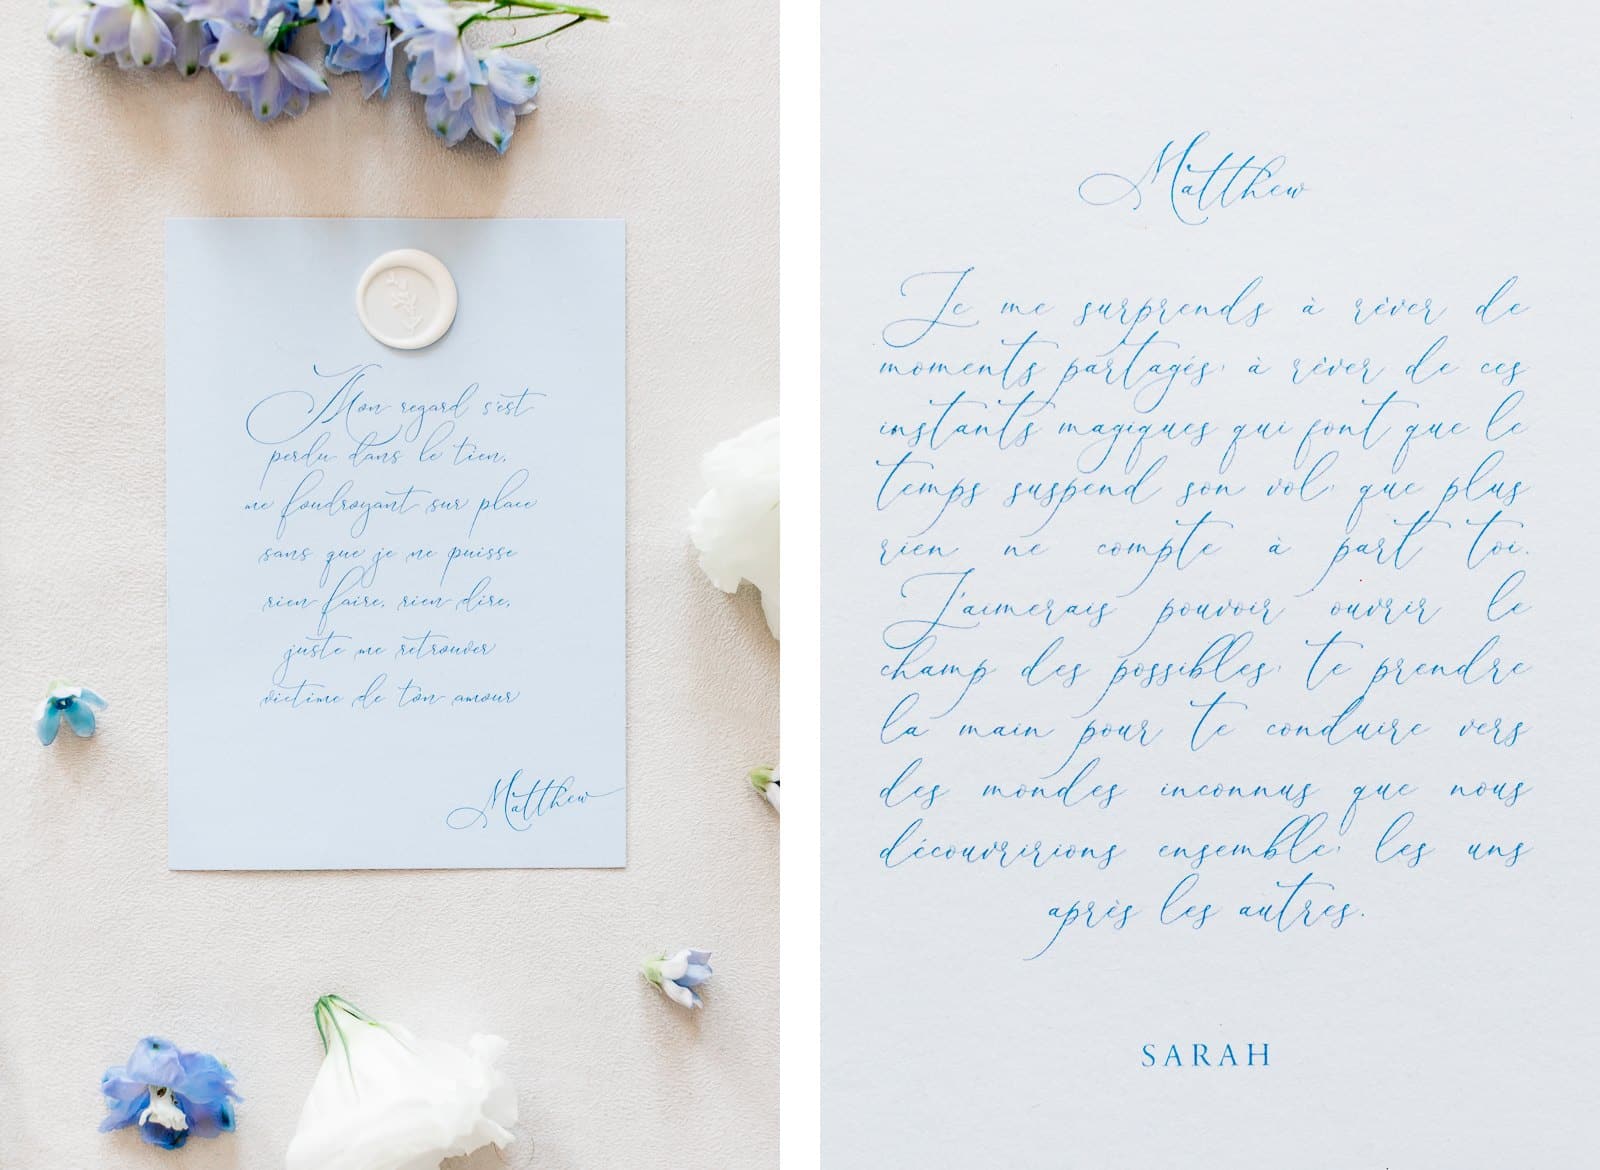 Mon regard s'est
perdu dans le tien,
me foudroyant sur place
sans que je ne puisse
rien faire, rien dire,
juste me retrouver
victime de ton amour
Matthew
Matthew
Je me surprends à rêver de
moments partagés, à rêver de ces
instants magiques qui font que le
temps suspend son vol, que plus
rien ne compte à part toi.
J'aimerais pouvoir ouvrir le
champ des possibles, te prendre
la main pour te conduire vers
des mondes inconnus que nous
découvririons ensemble, les uns
après les autres.
SARAH